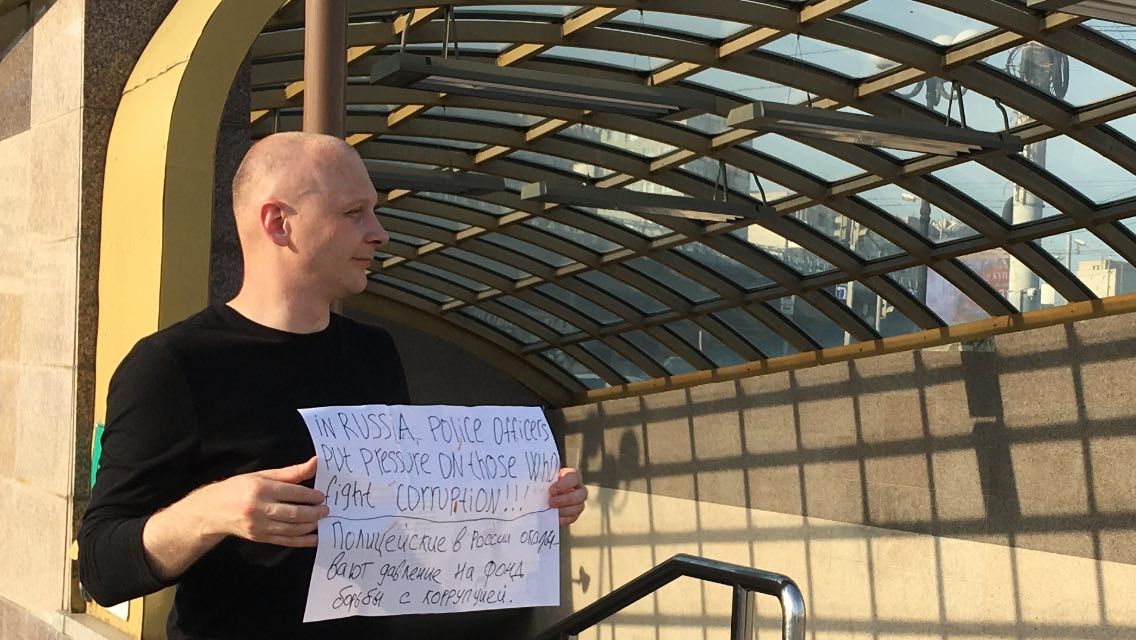 IN RUSSIA, POLICE OFFICERS
PUT PRESSURE ON those WHO
fight "CORRUPTION!!!
Полицейские в России оказы-
вают давление на фонд
борьбы с коррупцией.